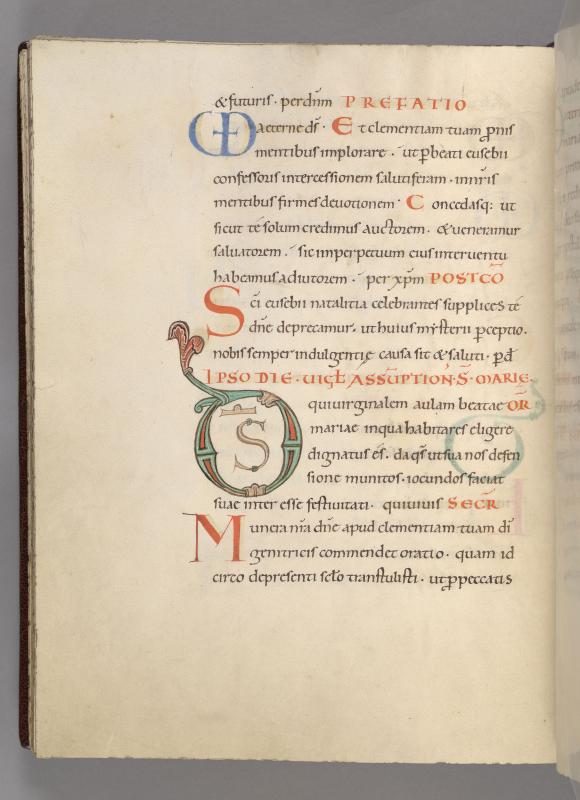 & futuris · per dnm̄ PREFATIO
VD aeterne ds̄ · Et clementiam tuam pronis
mentibus implorare · ut p beati eusebii
confessoris intercessionem salutiferam · in nr̄is
mentibus firmes deuotionem · Concedasq: ut
sicut te solum credimus auctorem · & ueneramur
saluatorem · sic in perpetuum eius interuentu
habeamus adiutorem · per xp̄m POSTCO̅
Sc̄i eusebii natalitia celebrantes supplices te
dn̄e deprecamur · ut huius mysterii perceptio ·
nobis semper indulgentię causa sit & saluti · p d
IPSO DIE · UIGL̄ ASSŪPTION̄ · S̄ · MARIE ·
DS qui uirginalem aulam beatae OR̄
mariae in qua habitares eligere
dignatus es · da qs̄ ut sua nos defen
sione munitos · iocundos faciat
suae interesse festiuitati · qui uiuis SECR̄
Munera nr̄a dn̄e apud clementiam tuam dī
genitricis commendet oratio · quam id
circo de presenti sc̄lo transtulisti · ut pro peccatis